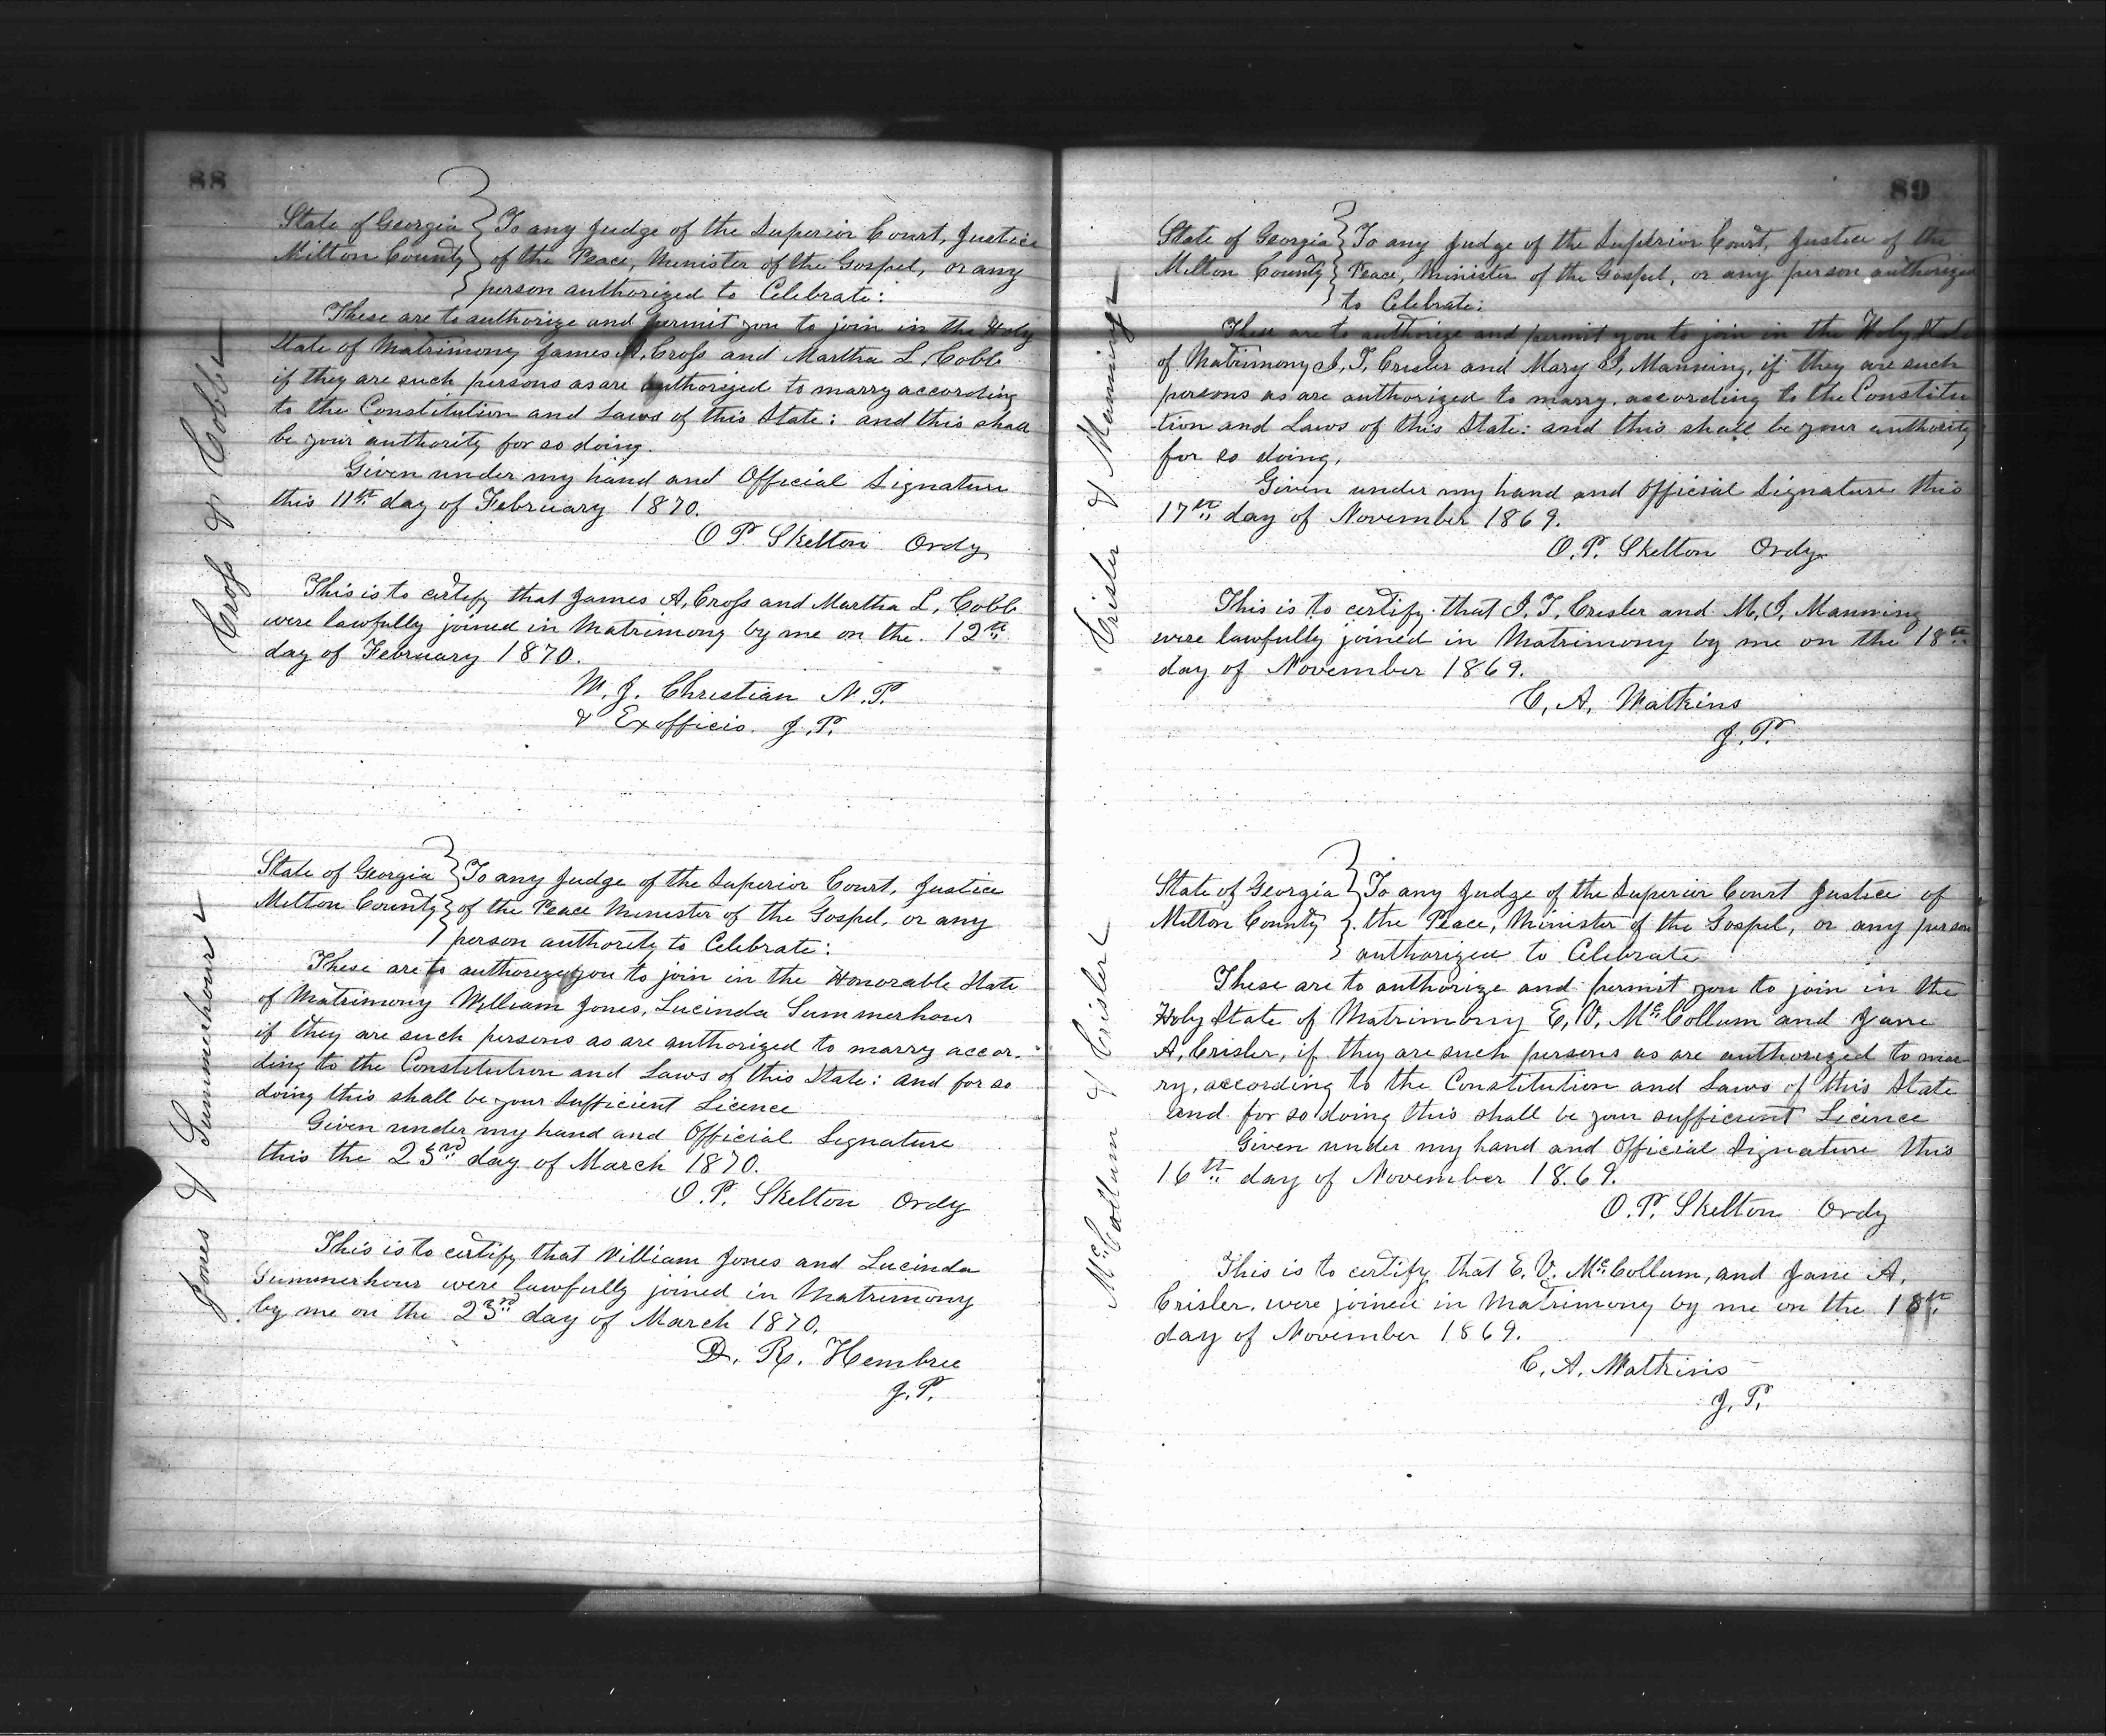 88
Cross & Cobb
State of Georgia } To any Judge of the Superior Court, Justice
Milton County } of the Peace, Minister of the Gospel, or any
person authorized to Celebrate:
These are to authorize and permit you to join in the Holy
State of Matrimony James A. Cross and Martha L. Cobb
if they are such persons as are authorized to marry according
to the Constitution and Laws of this State: and this shall
be your authority for so doing.
Given under my hand and Official Signature
this 11th day of February 1870.
O P. Skelton Ordy
This is to certify that James A, Cross and Martha L, Cobb
were lawfully joined in Matrimony by me on the. 12th
day of February 1870.
M. J. Christian N.P.
& Exofficio. J.P.
Jones & Summerhour
State of Georgia } To any Judge of the Superior Court, Justice
Milton County } of the Peace Minister of the Gospel, or any
person authority to Celebrate:
These are to authorize you to join in the Honorable State
of Matrimony William Jones, Lucinda Summerhour
if they are such persons as are authorized to marry accor-
ding to the Constitution and Laws of this State: and for so
doing this shall be your Sufficient Licence
Given under my hand and Official Signature
this the 23rd day of March 1870.
O.P. Skelton Ordy
This is to certify that William Jones and Lucinda
Summerhour were lawfully joined in Matrimony
by me on the 23rd day of March 1870.
D. R. Hembree
J.P.
89
Crisler & Manning
State of Georgia } To any Judge of the Superior Court, Justice of the
Milton County } Peace, Minister of the Gospel, or any person authorized
to Celebrate:
These are to authorize and permit you to join in the Holy State
of Matrimony J, T, Crisler and Mary J, Manning, if they are such
persons as are authorized to marry, according to the Constitu
-tion and Laws of this State: and this shall be your authority
for so doing,
Given under my hand and Official Signature this
17th day of November 1869.
O.P. Skelton Ordy
This is to certify that J, T, Crisler and M, J, Manning
were lawfully joined in Matrimony by me on the 18th
day of November 1869.
C, A. Watkins
J.P.
McCollum & Crisler
State of Georgia } To any Judge of the Superior Court Justice of
Milton County } the Peace, Minister of the Gospel, or any person
authorized to Celebrate
These are to authorize and permit you to join in the
Holy State of Matrimony E, V, McCollum and Jane
A, Crisler, if they are such persons as are authorized to mar
ry, according to the Constitution and Laws of this State
and for so doing this shall be your sufficient Licence
Given under my hand and Official Signature this
16th day of November 1869.
O.P. Skelton Ordy
This is to certify that E. V. McCollum, and Jane A,
Crisler, were joined in Matrimony by me on the 18th
day of November 1869.
C, A, Watkins
J, P,